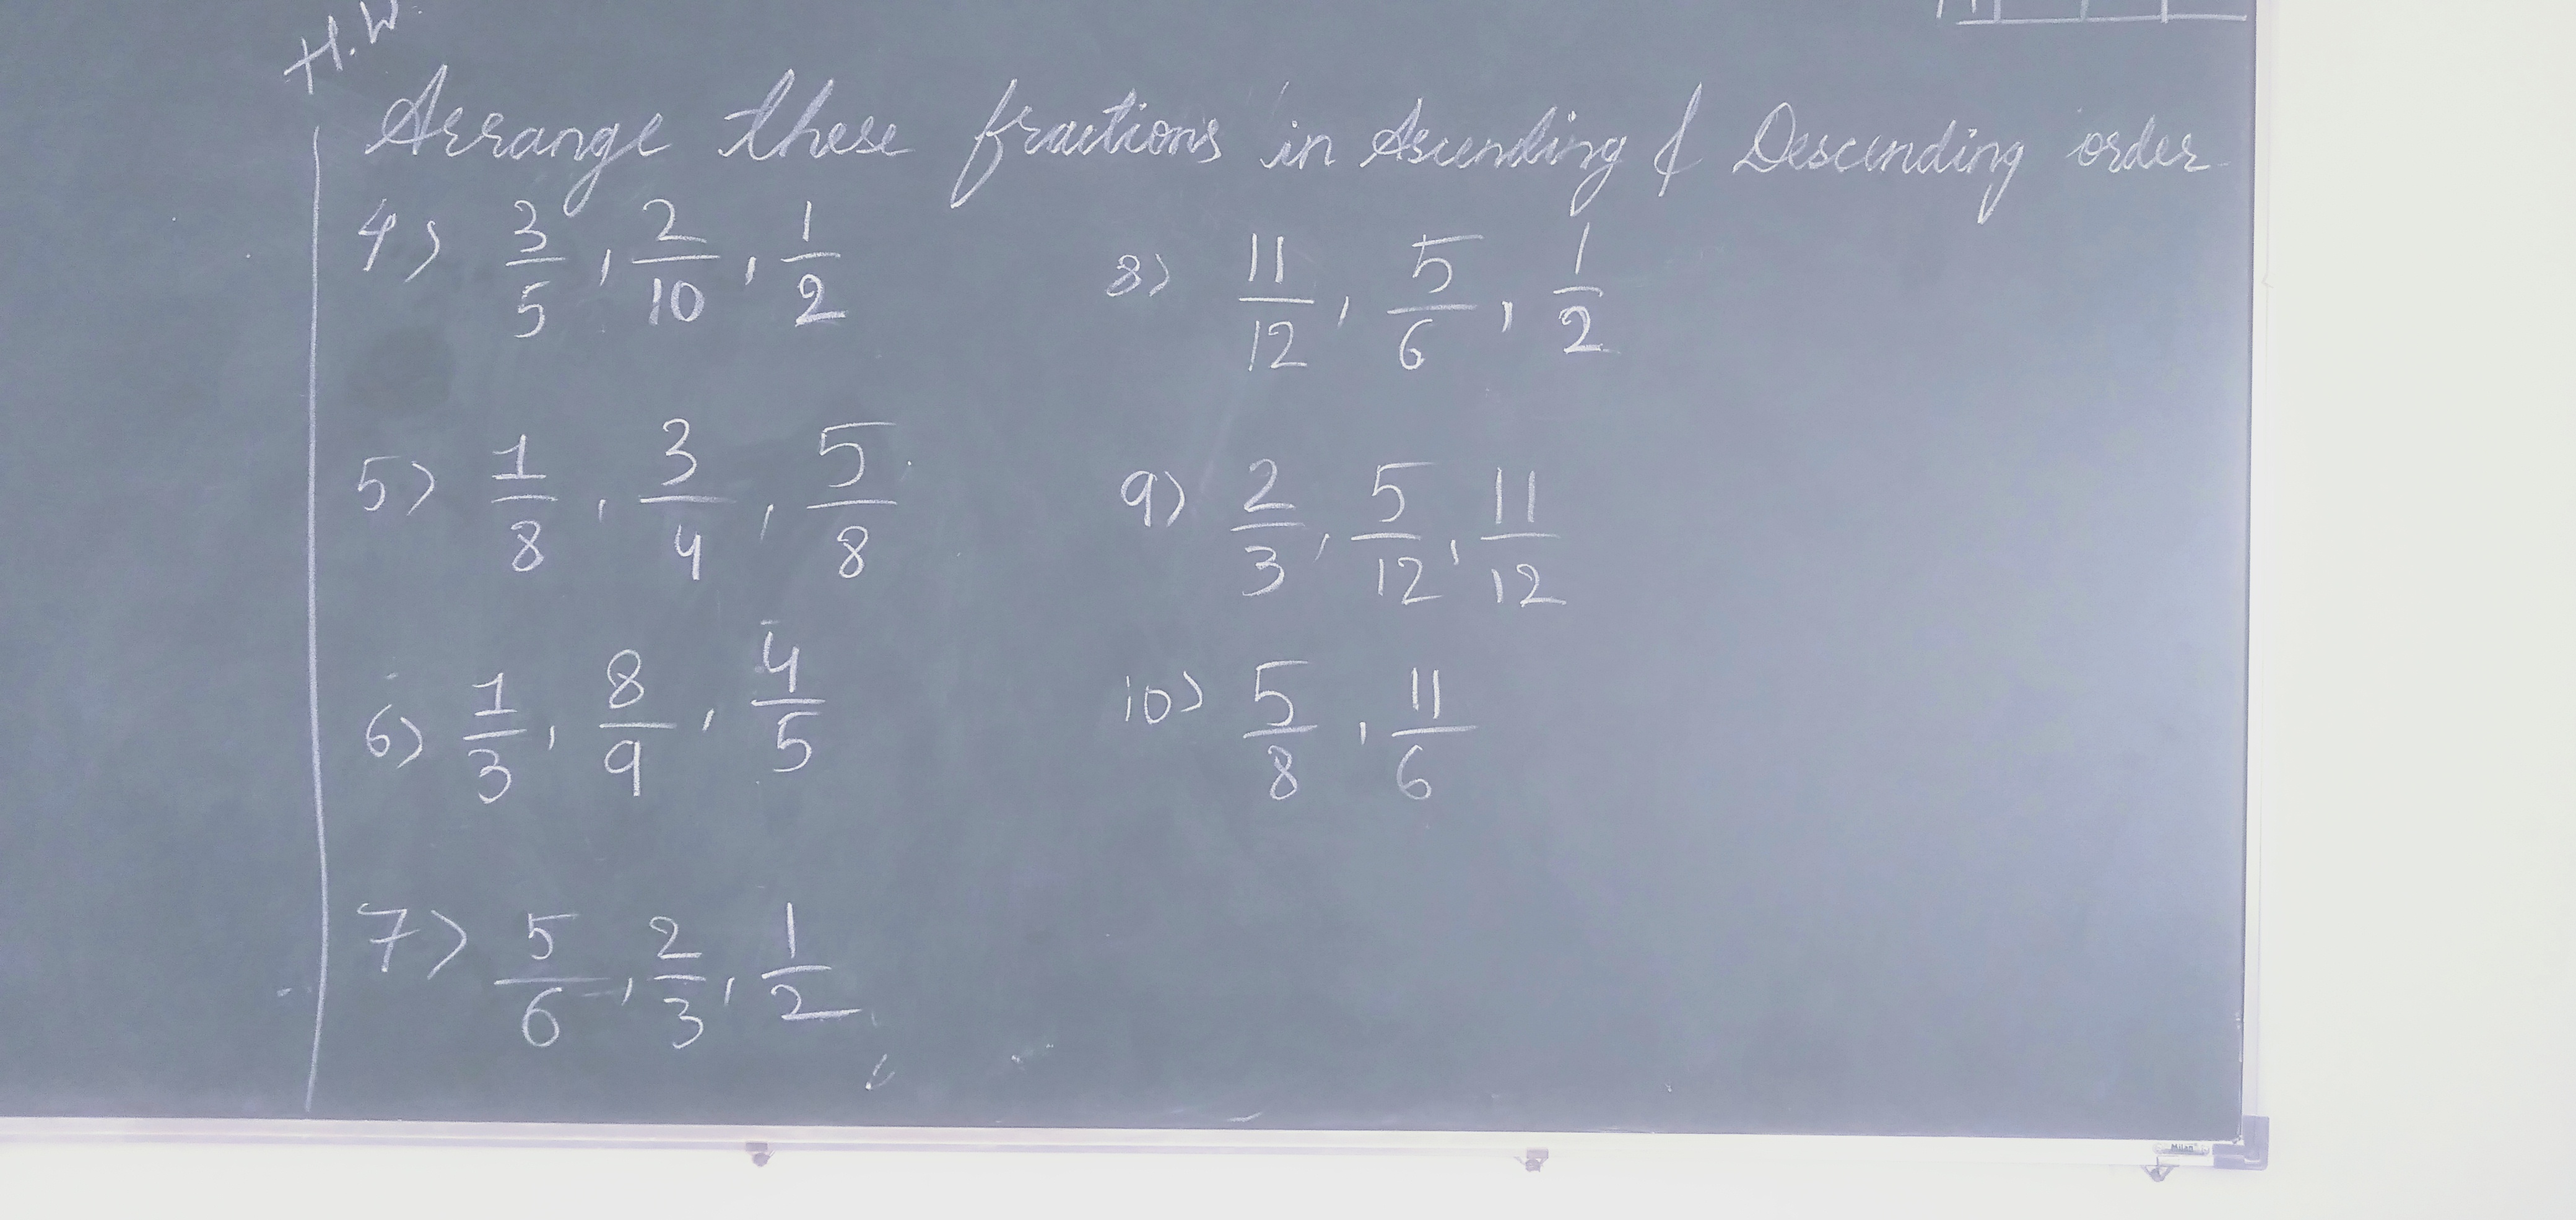 H.W
Arrange these fractions in Ascending & Descending order
4) 3/5, 2/10, 1/2
5) 1/8, 3/4, 5/8
6) 1/3, 8/9, 4/5
7) 5/6, 2/3, 1/2
8) 11/12, 5/6, 1/2
9) 2/3, 5/12, 11/12
10) 5/8, 11/6
Milan